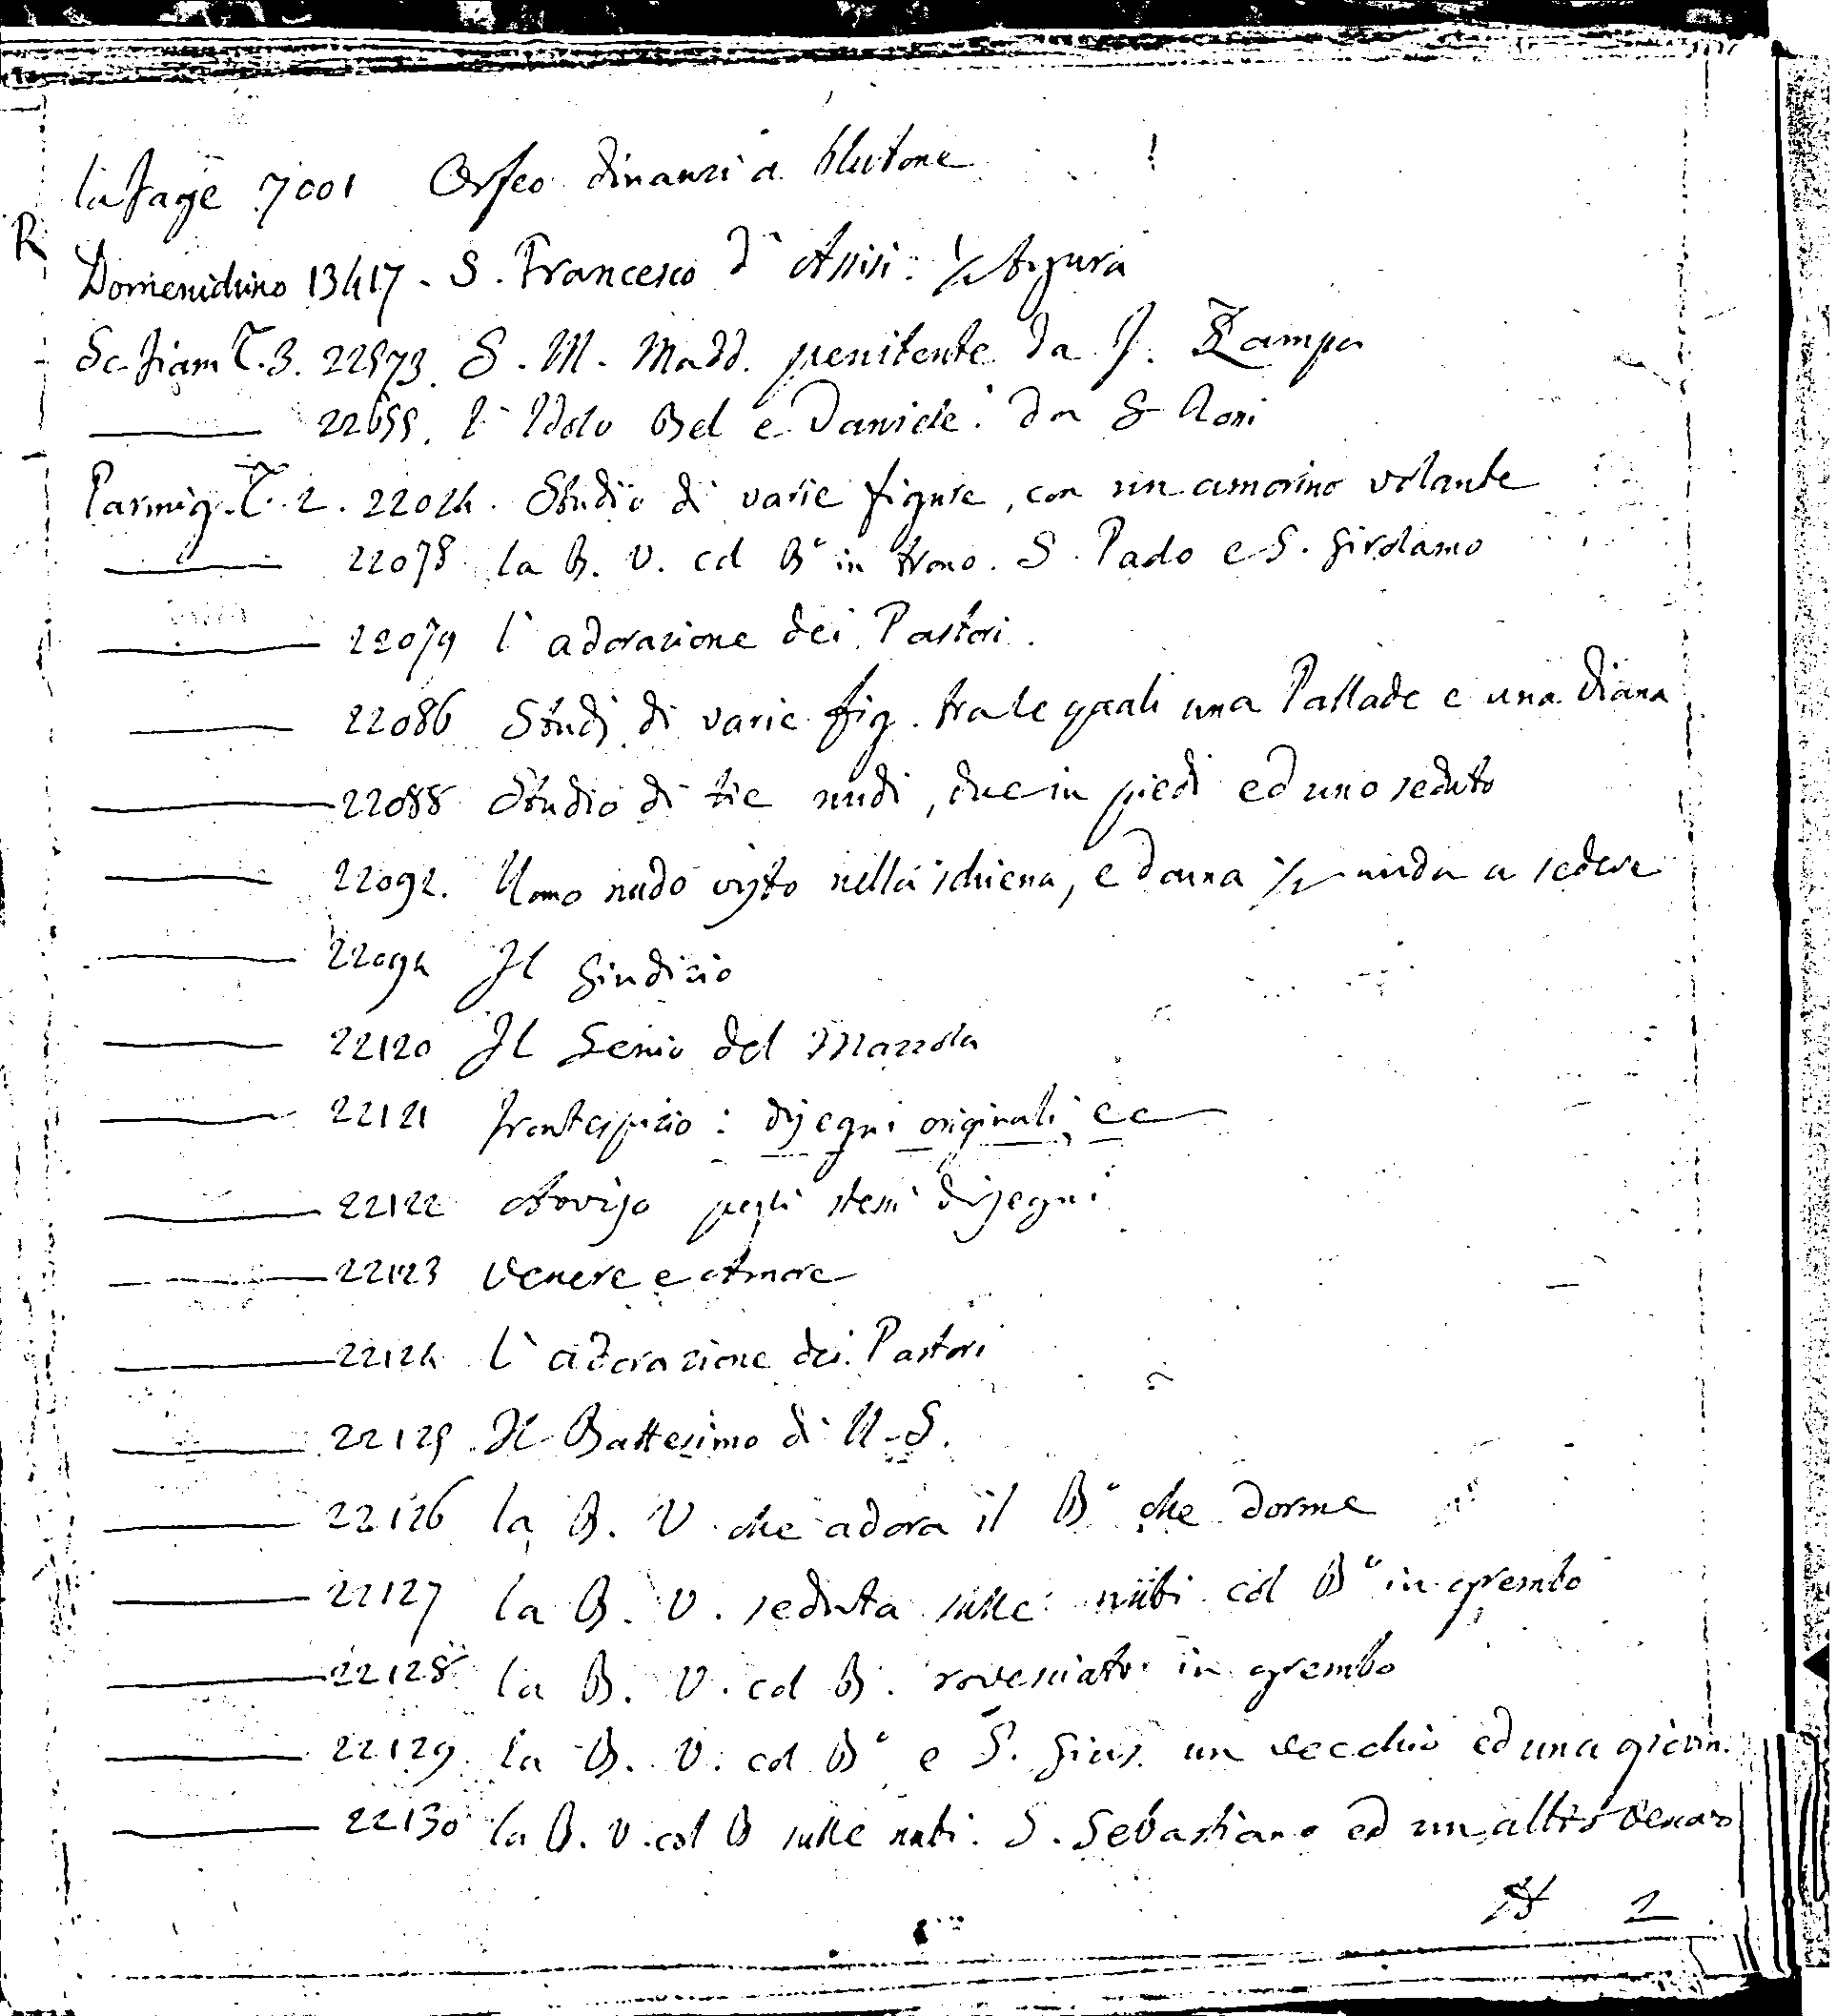 la fage 7001 Orfeo dinanzi a Plutone
R
Domenichino 13417 - S. Francesco d'Assisi: 1/2 figura
Sc. fiam T. 3. 22573. S. M. Madd. penitente da J. Zampa
22655. l'Idolo Bel e Daniele: da
Parmig. T. 2. 22024. Studio di varie figure, con un amorino volante
22078 la B. V. col Bº in trono. S. Paolo e S. Girolamo
22079 l'adorazione dei Pastori.
22086 Studj di varie fig. tra le quali una Pallade e una Diana
22088 Studio di tre nudi, due in piedi ed uno seduto
22092. Uomo nudo visto nella schiena, e donna 1/2 nuda a sedere
22094 Il Giudizio
22120 Il Genio del Mazzola
22121 frontespizio: disegni originali, ec
22122 Avviso pegli stessi disegni
22123 Venere e Amore
22124 l'adorazione dei Pastori
22125 Il Battesimo di N. S.
22126 la B. V. che adora il Bº che dorme
22127 la B. V. seduta sulle nubi col Bº in grembo
22128 la B. V. col B. rovesciato in grembo
22129 la B. V. col Bº e S. Gius. un vecchio ed una giovin.
22130 la B. V. col B sulle nubi. S. Sebastiano ed un altro
2